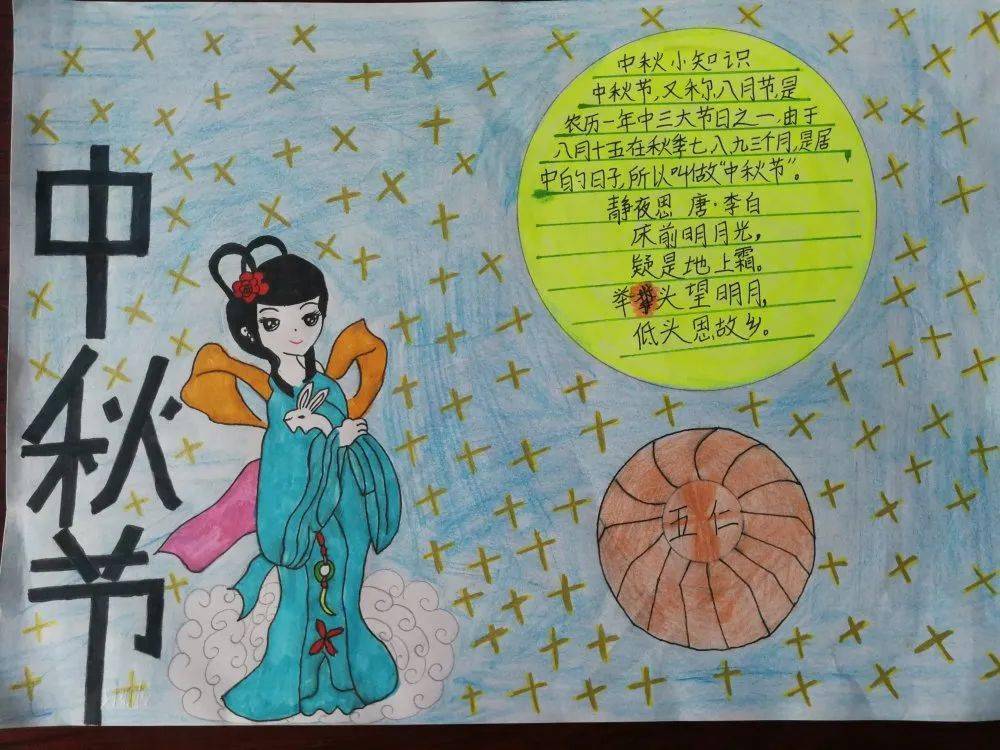 中秋节
中秋小知识
中秋节,又称,八月节,是
农历一年中三大节日之一,由于
八月十五在秋季七、八、九三个月,是居
中的日子,所以叫做“中秋节”。
静夜思 唐·李白
床前明月光,
疑是地上霜。
举头望明月,
低头思故乡。
五仁